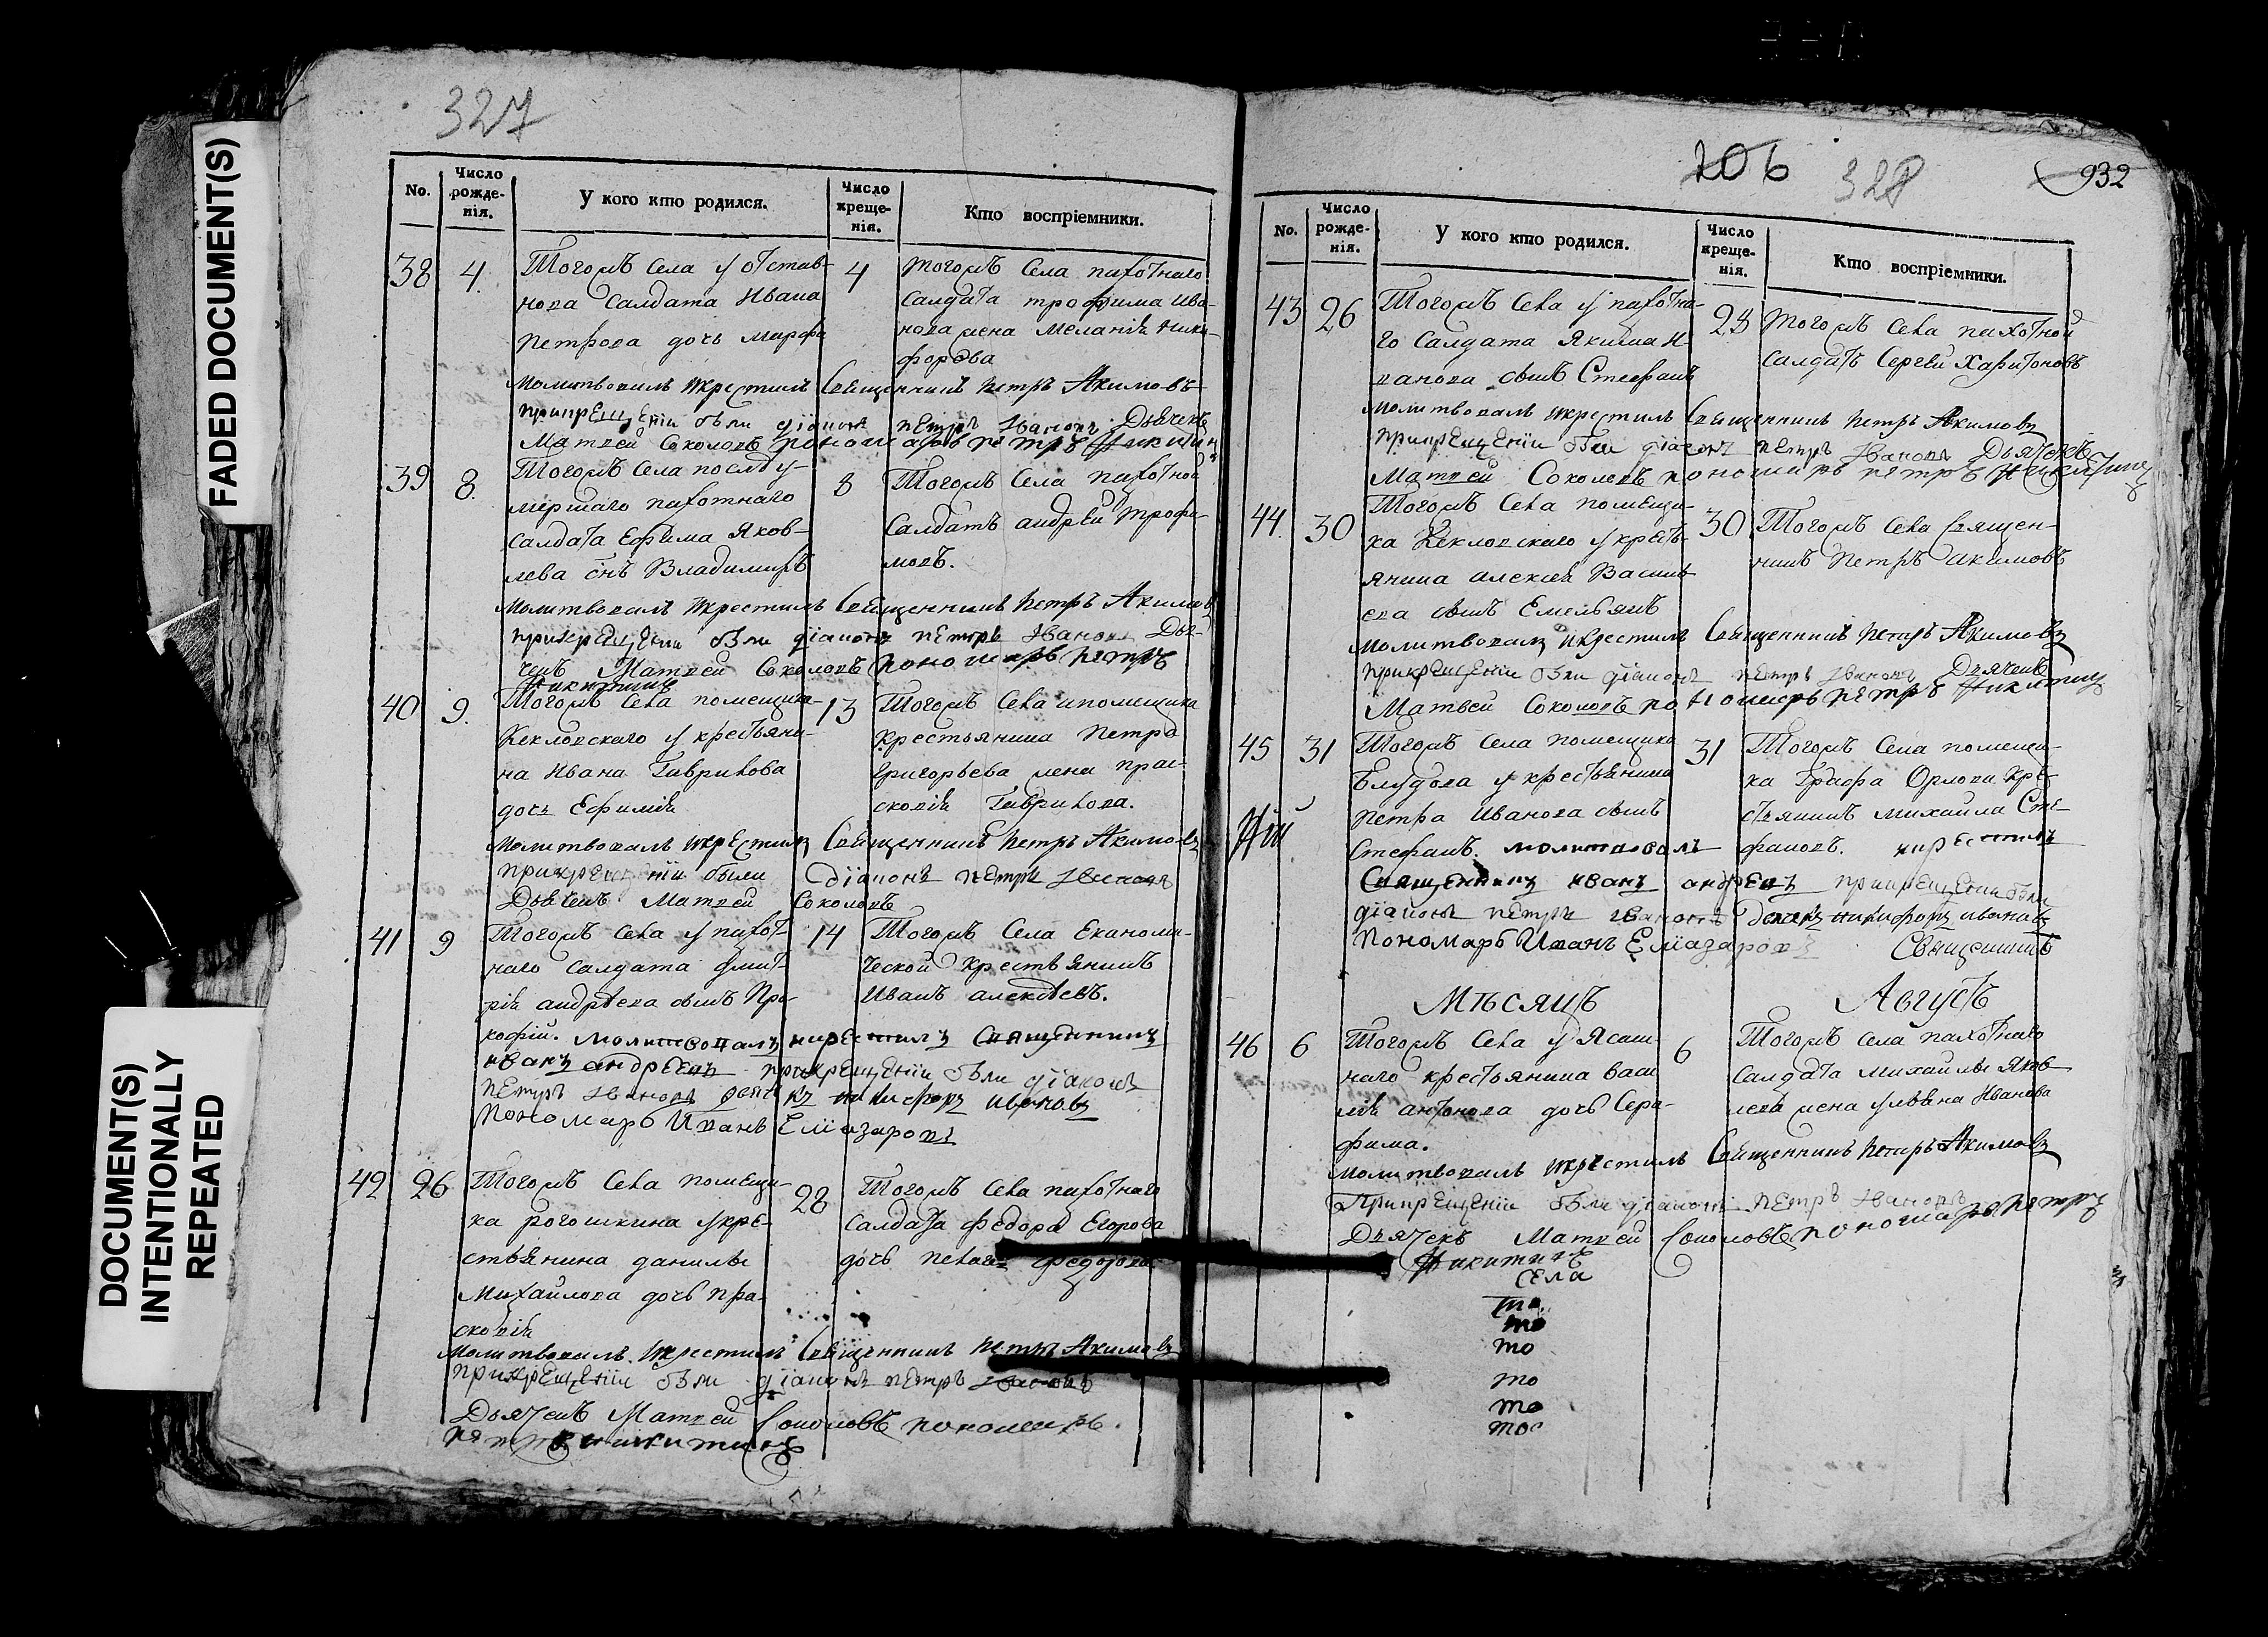 FADED DOCUMENT(S)
DOCUMENT(S)
INTENTIONALLY
REPEATED
327
No.
Число рожде-нія.
У кого кто родился.
Число креще-нія.
Кто воспріемники.
38
4.
Тогожъ села у отстав-
нова Салдата Ивана
Петрова дочь Марфа
4
Тогожъ Села пахотнаго
Салдата трофима Ива-
нова жена Меланія Ники-
форова
Молитвовалъ и крестилъ Священникъ Петръ Акимовъ
при крещеніи были діаконъ петръ Ивановъ Дьячекъ
Матвей Соколовъ пономарь петръ Никитинъ
39
8.
Тогожъ Села послѣ у-
мершаго пахотнаго
салдата Ефима Яков-
лева снъ Владимиръ
8
Тогожъ Села пахотной
Салдатъ андрей трофи-
мовъ.
Молитвовалъ и крестилъ Священникъ Петръ Акимовъ
при крещеніи были діаконъ петръ Ивановъ Дья-
чекъ Матвей Соколовъ пономарь петръ
Никитинъ
40
9.
Тогожъ Села помещика
Кекловскаго у крестьяни-
на Ивана Гаврилова
дочь Ефимія
13
Тогожъ Села и помещика
крестьянина Петра
Григорьева жена прас-
ковія Гаврилова.
Молитвовалъ и крестилъ Священникъ Петръ Акимовъ
при крещеніи были діаконъ петръ Ивановъ
Дьячекъ Матвей Соколовъ
41
9
Тогожъ Села у пахот-
наго салдата Дмит-
рія андрѣева сынъ Про-
кофій.
14
Тогожъ Села Економи-
ческой крестьянинъ
Иванъ алексѣевъ.
молитвовалъ и крестилъ Священникъ
иванъ андреевъ при крещеніи были діаконъ
петръ Ивановъ дьячекъ никифоръ ивановъ
Пономарь Иванъ Еліазаровъ
42
26
Тогожъ Села помещи-
ка рогошкина у кре-
стьянина данилы
Михаилова дочь пра-
сковія
28
Тогожъ Села пахотнаго
Салдата Федора Егорова
дочь Пелагея Федорова
Молитвовалъ и крестилъ Священникъ Петръ Акимовъ
при крещеніи были діаконъ петръ Ивановъ
Дьячекъ Матвей Соколовъ пономарь
петръ никитинъ
206
328
932
No.
Число рожде-нія.
У кого кто родился.
Число креще-нія.
Кто воспріемники.
43
26
Тогожъ Села у пахотна-
го Салдата Якима И-
ванова сынъ Стефанъ
28
Тогожъ Села пахотной
Салдатъ Сергей Харитоновъ
Молитвовалъ и крестилъ Священникъ Петръ Акимовъ
при крещеніи были діаконъ петръ Ивановъ Дьячекъ
Матвей Соколовъ пономарь петръ Никитинъ
44.
30
Тогожъ Села помещи-
ка Кекловскаго у кресть-
янина алексея Василь
ева сынъ Емельянъ
30
Тогожъ Села Священ-
никъ Петръ Акимовъ
Молитвовалъ и крестилъ Священникъ Петръ Акимовъ
при крещеніи были діаконъ петръ Ивановъ Дьячекъ
Матвей Соколовъ пономарь петръ Никитинъ
45
31
Тогожъ Села помещика
Блудова у крестьянина
Петра Иванова сынъ
Стефанъ.
31
Тогожъ Села помещи-
ка Графа Орлова кре-
стьянинъ Михайла Сте-
фановъ.
молитвовалъ и крестилъ
Священникъ иванъ андреевъ при крещеніи были
діаконъ петръ Ивановъ дьячекъ никифоръ ивановъ
Пономарь Иванъ Еліазаровъ Священникъ
Мѣсяцъ Августъ
46
6
Тогожъ Села у Ясаш-
наго крестьянина Васи
лія антонова дочь Сера-
фима.
6
Тогожъ Села пахотнаго
Салдата Михайлы Яков-
лева жена Ульяна Иванова
Молитвовалъ и крестилъ Священникъ Петръ Акимовъ
При крещеніи были діаконъ Петръ Ивановъ
Дьячекъ Матвей Соколовъ пономарь петръ
Никитинъ
Села
то
то
то
то
то
то